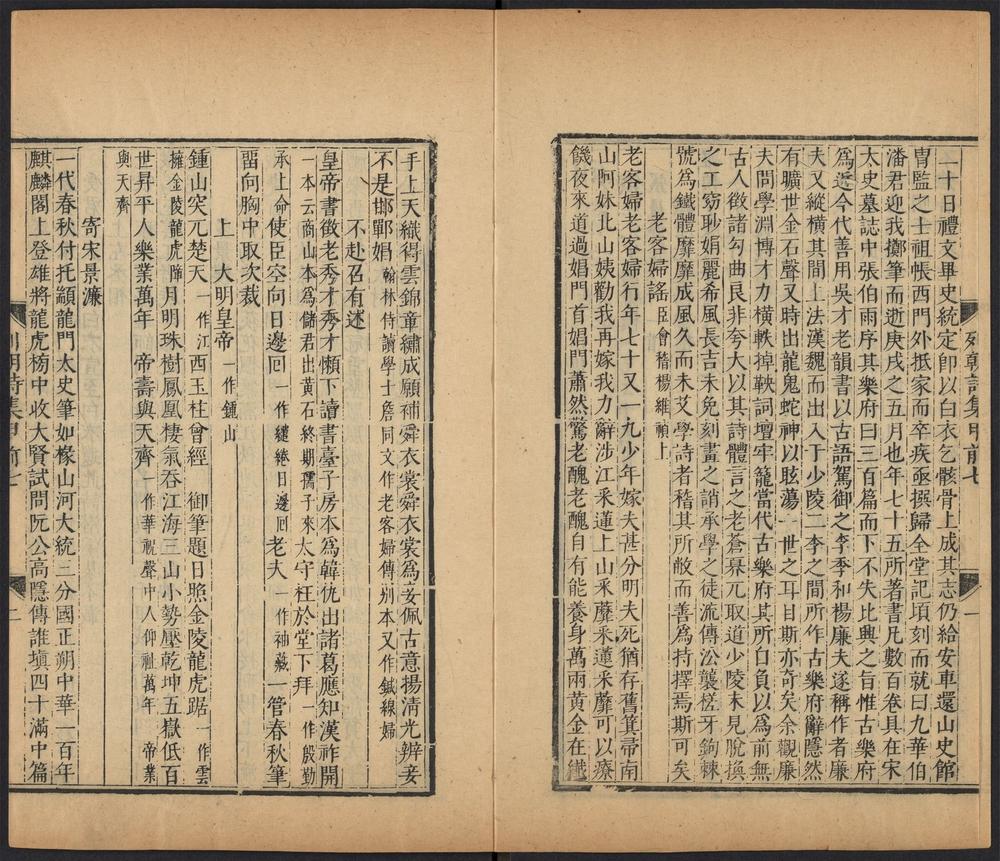 一十日禮文畢史統定卽以白衣乞骸骨上成其志仍給安車還山史館
胄監之士祖帳西門外抵家而卒疾亟撰歸全堂記頃刻而就曰九華伯
潘君迎我擲筆而逝庚戌之五月也年七十五所著書凡數百卷具在宋
太史墓誌中張伯雨序其樂府曰三百篇而下不失比興之旨惟古樂府
爲近今代善用吳才老韻書以古語駕御之李季和楊廉夫遂稱作者廉
夫又縱橫其間上法漢魏而出入于少陵二李之間所作古樂府辭隱然
有曠世金石聲又時出龍鬼蛇神以眩蕩一世之耳目斯亦奇矣余觀廉
夫問學淵博才力橫軼掉鞅詞壇牢籠當代古樂府其所自負以爲前無
古人徵諸勾曲良非夸大以其詩體言之老蒼奡兀取道少陵未見脫換
之工窈眇娟麗希風長吉未免刻畫之誚承學之徒流傳沿襲槎牙鉤棘
號爲鐵體靡靡成風久而未艾學詩者稽其所敝而善爲持擇焉斯可矣
老客婦謠 臣會稽楊維禎上
老客婦老客婦行年七十又一九少年嫁夫甚分明夫死猶存舊箕帚南
山阿妹北山姨勸我再嫁我力辭涉江采蓮上山采蘼采蓮采蘼可以療
饑夜來道過娼門首娼門蕭然驚老醜老醜自有能養身萬兩黃金在纖
列朝詩集甲前七
一
手上天織得雲錦章繡成願補舜衣裳舜衣裳爲妾佩古意揚清光辨妾
不是邯鄲娼 翰林侍讀學士詹同文作老客婦傳別本又作鍼線婦
不赴召有述
皇帝書徵老秀才秀才懶下讀書臺子房本爲韓仇出諸葛應知漢祚開
一本云商山本爲儲君出黃石終期孺子來 太守枉於堂下拜 一作殷勤
承上命 使臣空向日邊回 一作繾綣日邊回 老夫 一作袖藏 一管春秋筆
留向胸中取次裁
上 大明皇帝 一作鍾山
鍾山突兀楚天 一作江 西玉柱曾經 御筆題日照金陵龍虎踞 一作雲
擁金陵龍虎陣 月明珠樹鳳凰棲氣吞江海三山小勢壓乾坤五嶽低百
世昇平人樂業萬年 帝壽與天齊 一作華祝聲中人仰祖萬年 帝業
與天齊
寄宋景濂
一代春秋付托顓龍門太史筆如椽山河大統三分國正朔中華一百年
麒麟閣上登雄將龍虎榜中收大賢試問阮公高隱傳誰塡四十滿中篇
列朝詩集甲前七
二